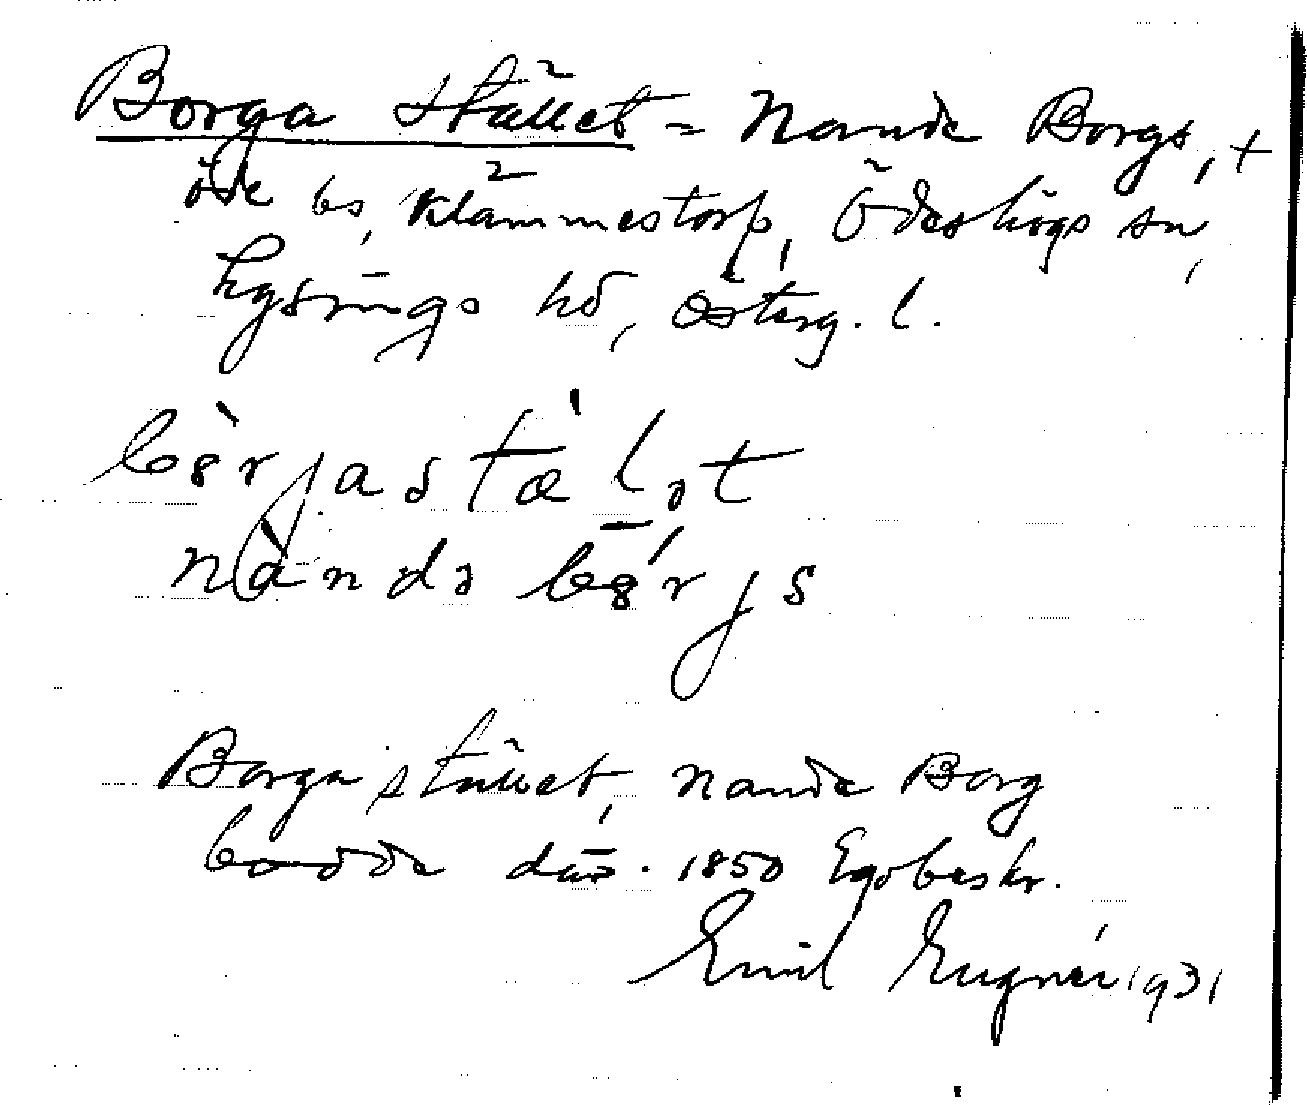 Borga stället = Nande Borgs, +
öde bs, Klämmestorp, Ödeshögs sn,
Lysings hd, Österg. l.
bȯrjastælət
nàndə bȯrjs
Borga stället, Nande Borg
bodde där. 1850 Egobeskr.
Emil Engnér 1931